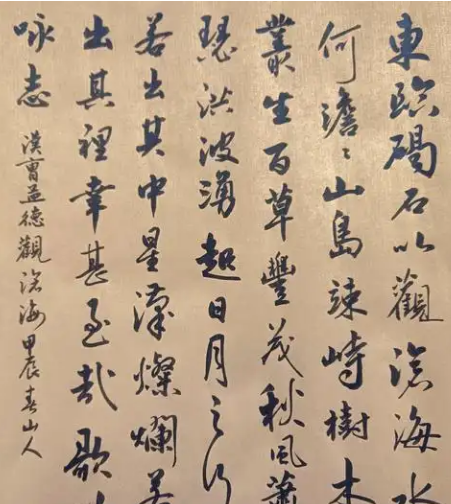 東臨碣石以觀滄海水
何澹〻山島竦峙樹木
叢生百草豐茂秋風蕭
瑟洪波湧起日月之行
若出其中星漢燦爛若
出其裡幸甚至哉歌以
咏志
漢曹孟德觀滄海甲辰春山人